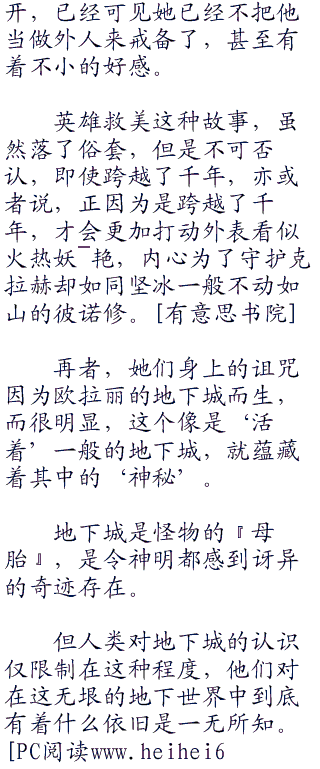 开，已经可见她已经不把他
当做外人来戒备了，甚至有
着不小的好感。
英雄救美这种故事，虽
然落了俗套，但是不可否
认，即使跨越了千年，亦或
者说，正因为是跨越了千
年，才会更加打动外表看似
火热妖¯艳，内心为了守护克
拉赫却如同坚冰一般不动如
山的彼诺修。[有意思书院]
再者，她们身上的诅咒
因为欧拉丽的地下城而生，
而很明显，这个像是‘活
着’一般的地下城，就蕴藏
着其中的‘神秘’。
地下城是怪物的『母
胎』，是令神明都感到讶异
的奇迹存在。
但人类对地下城的认识
仅限制在这种程度，他们对
在这无垠的地下世界中到底
有着什么依旧是一无所知。
[PC阅读www.heihei6